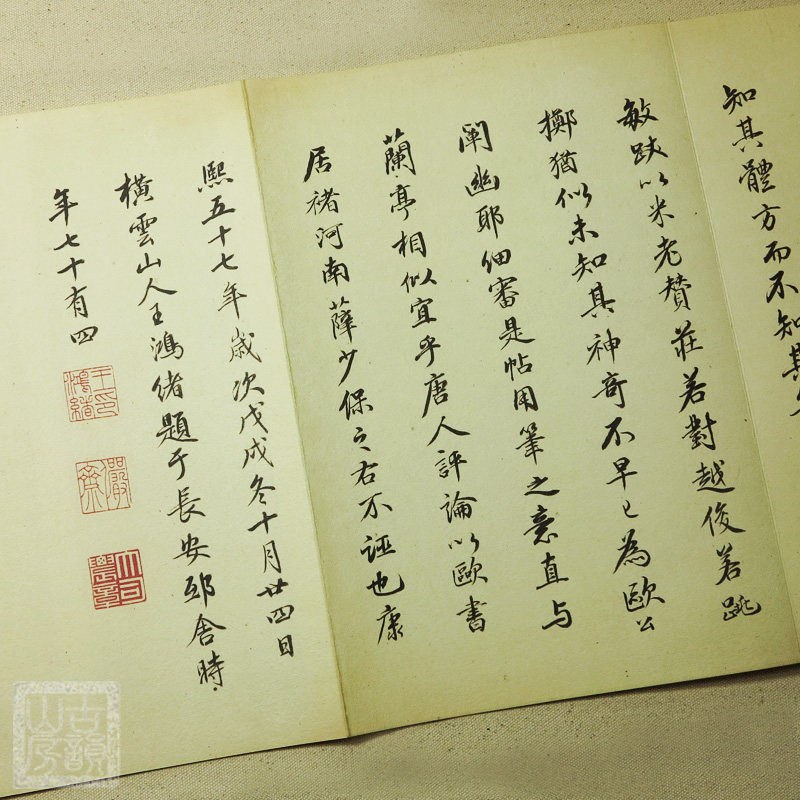 知其體方而不知其
敏跋以米老贊莊若對越俊若跳
擲猶似未知其神奇不早已為歐公
闡幽耶細審是帖用筆之意直与
蘭亭相似宜乎唐人評論以歐書
居褚河南薛少保之右不誣也康
熙五十七年歲次戊戌冬十月廿四日
橫雲山人王鴻緒題于長安邸舍時
年七十有四
王印鴻緒
儼齋
大司農章